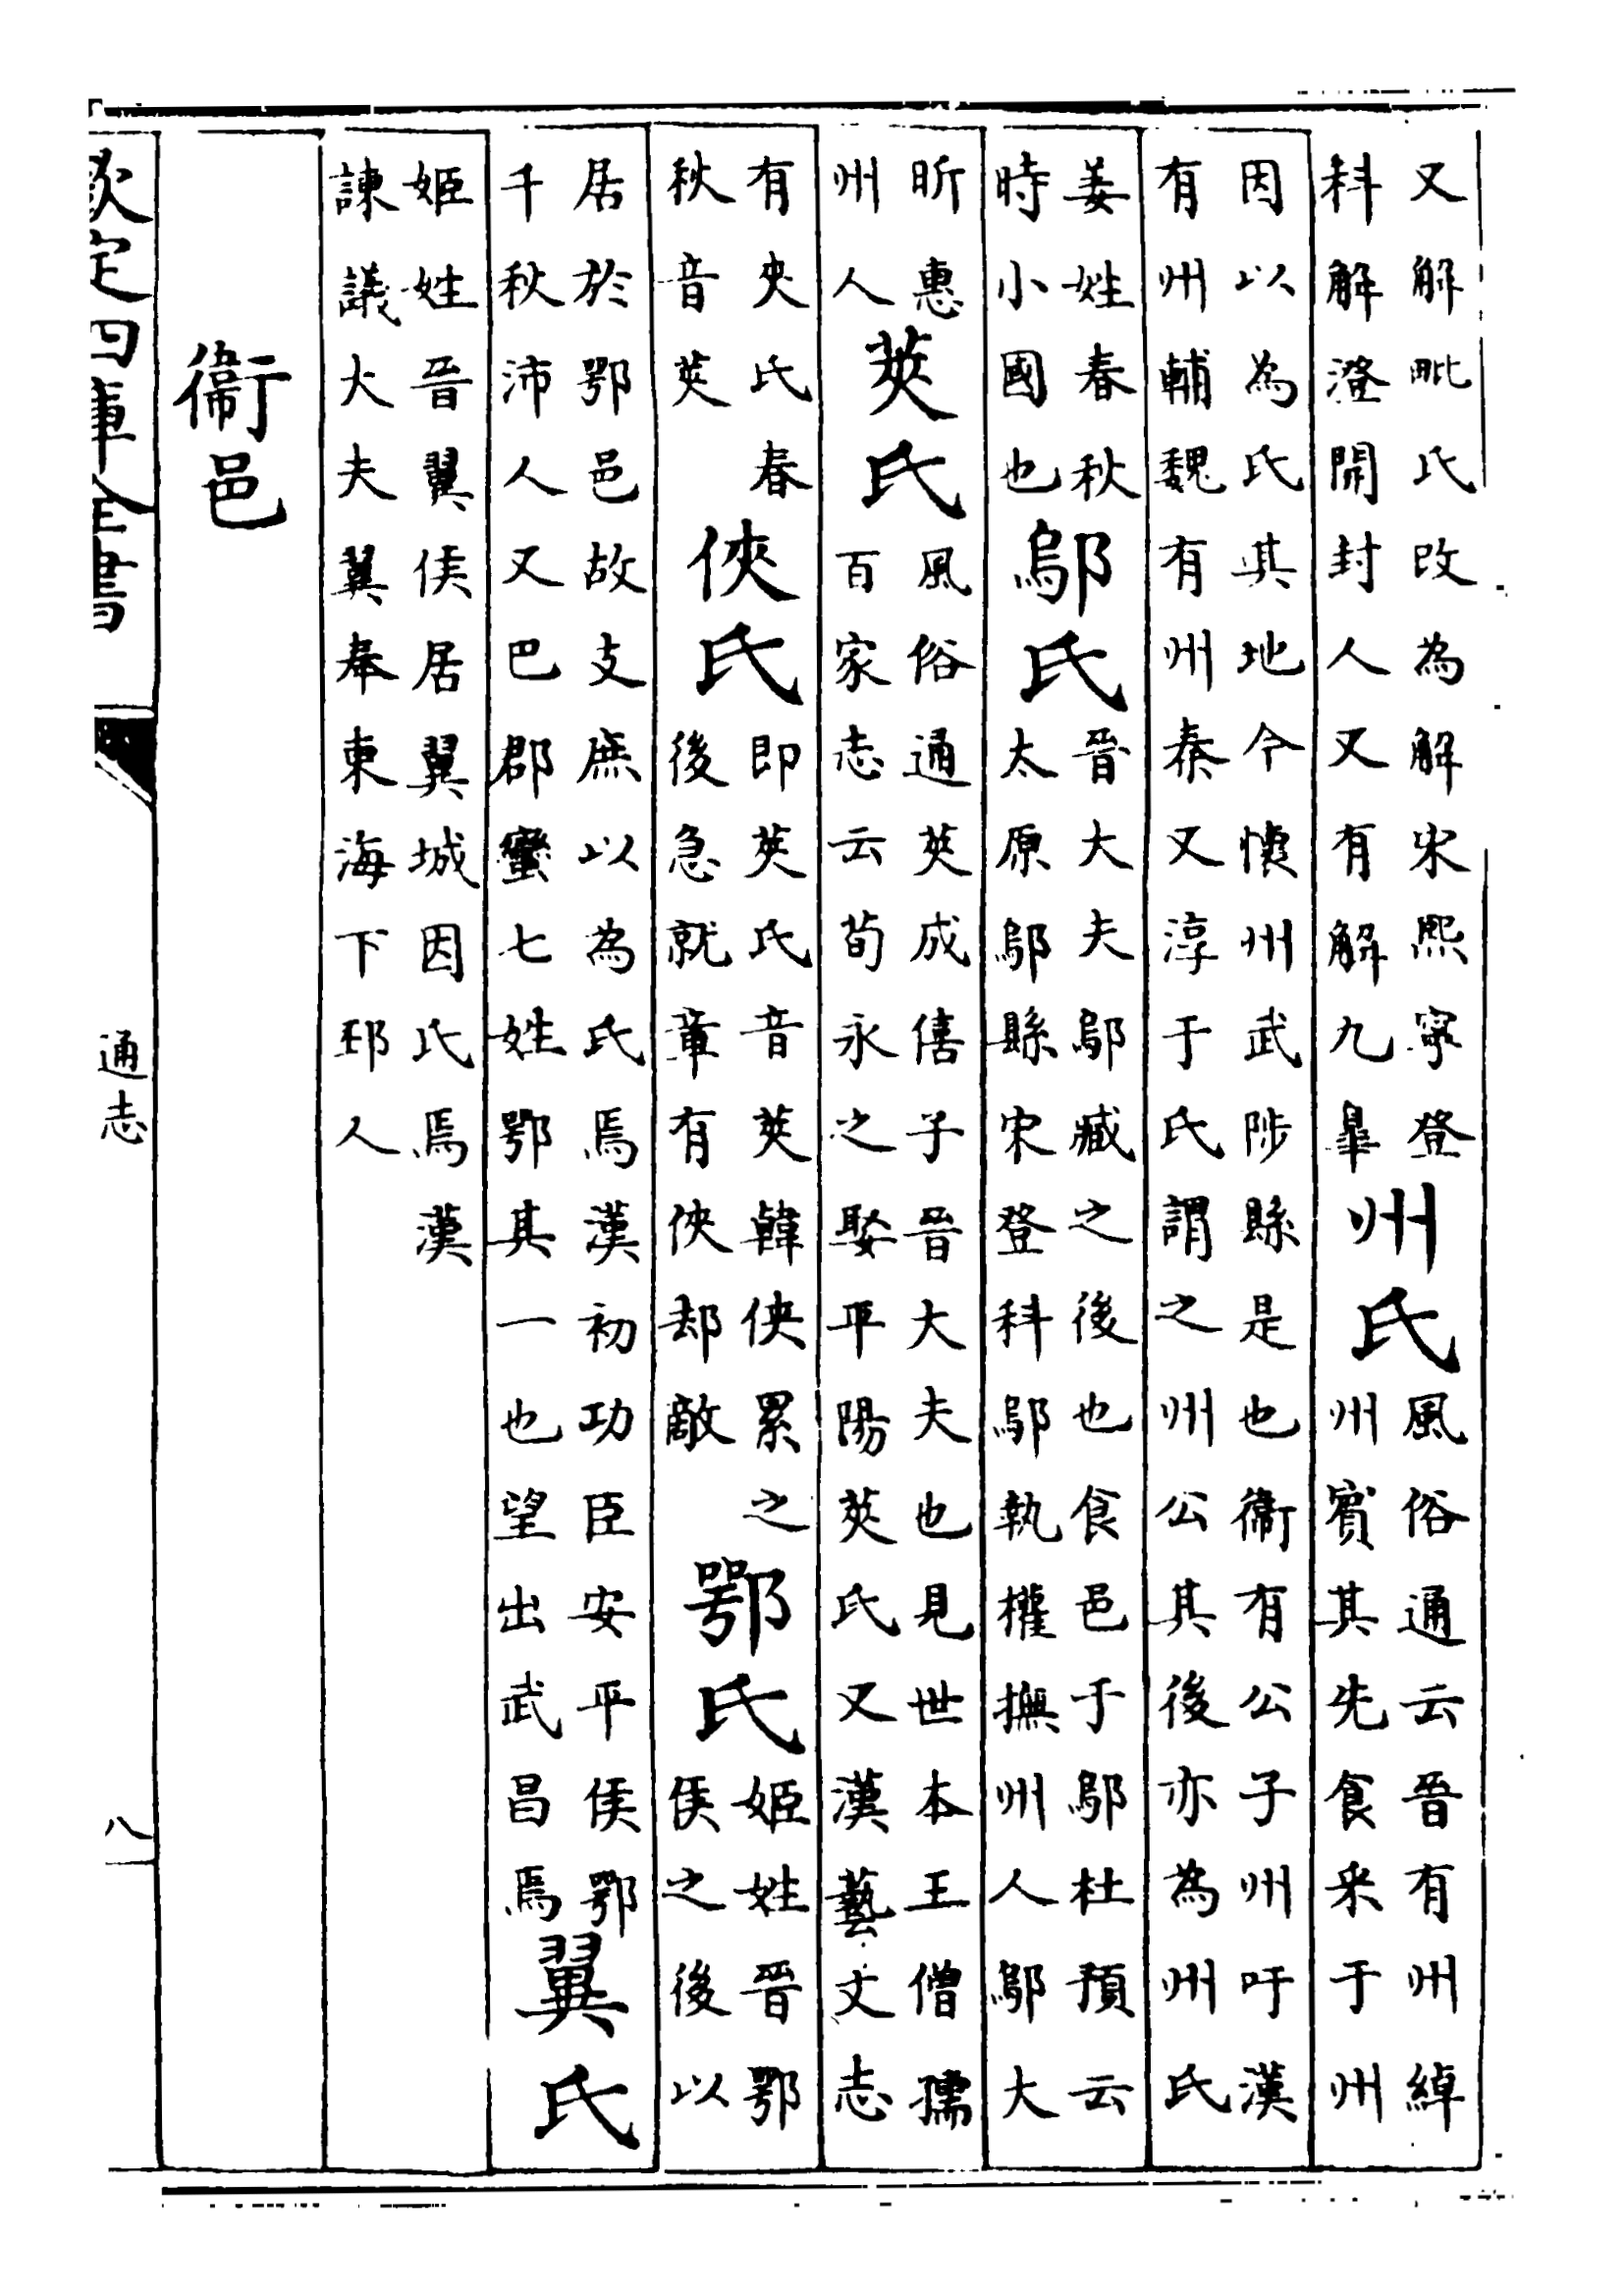 又解毗氏改為解宋熙寧登
科解澄開封人又有解九臯
州氏
風俗通云晉有州綽
州賓其先食采于州
因以為氏其地今懷州武陟縣是也衛有公子州吁漢
有州輔魏有州泰又淳于氏謂之州公其後亦為州氏
姜姓春秋
時小國也
鄔氏
晉大夫鄔臧之後也食邑于鄔杜預云
太原鄔縣宋登科鄔執權撫州人鄔大
昕惠
州人
莢氏
風俗通莢成僖子晉大夫也見世本王僧孺
百家志云荀永之娶平陽莢氏又漢藝文志
有夾氏春
秋音莢
俠氏
即莢氏音莢韓俠累之
後急就章有俠却敵
鄂氏
姬姓晉鄂
侯之後以
居於鄂邑故支庶以為氏焉漢初功臣安平侯鄂
千秋沛人又巴郡蠻七姓鄂其一也望出武昌焉
翼氏
姬姓晉翼侯居翼城因氏焉漢
諫議大夫翼奉東海下邳人
衛邑
欽定四庫全書
通志
八